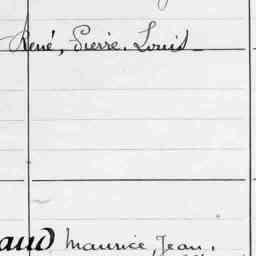 René, Pierre, Louis
aud Maurice, Jean,